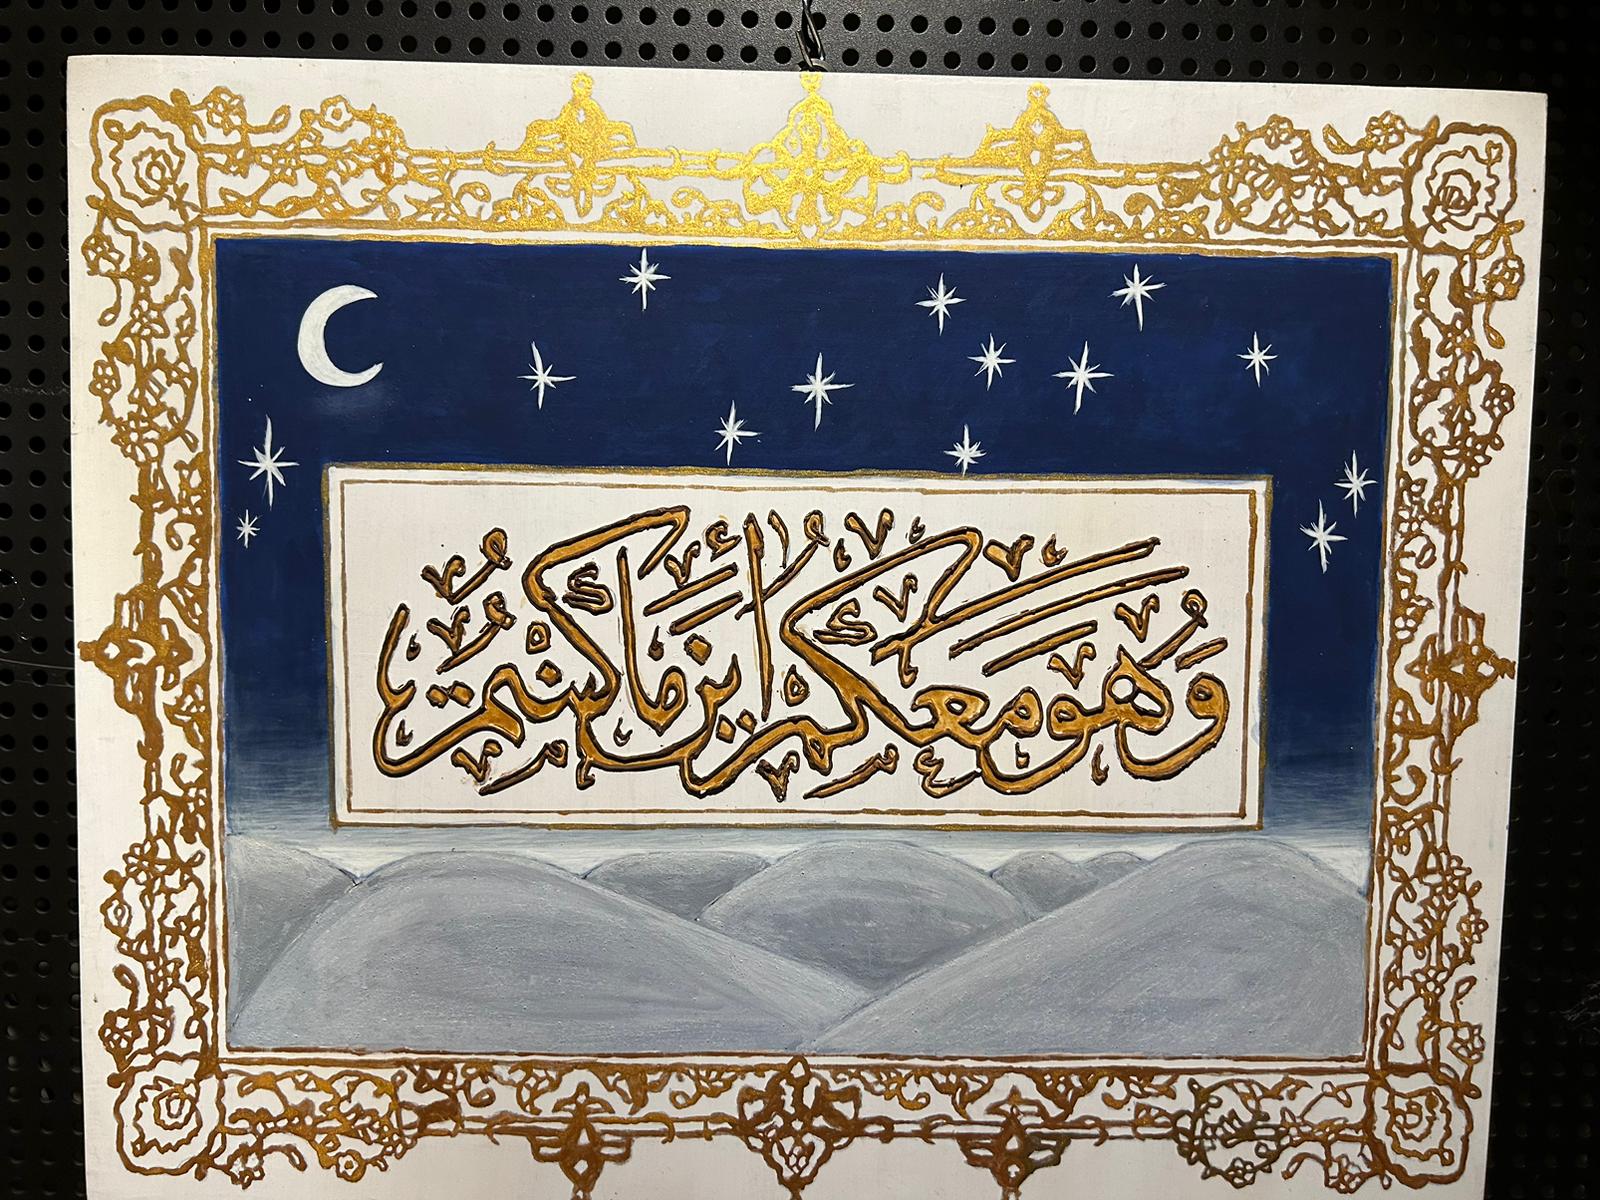 وَهُوَ مَعَكُمْ أَيْنَ مَا كُنْتُمْ